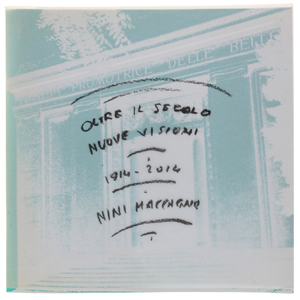 PROMOTRICE DELLE BELLE
OLTRE IL SECOLO
NUOVE VISIONI
1914-2014
NINI MACCAGNO